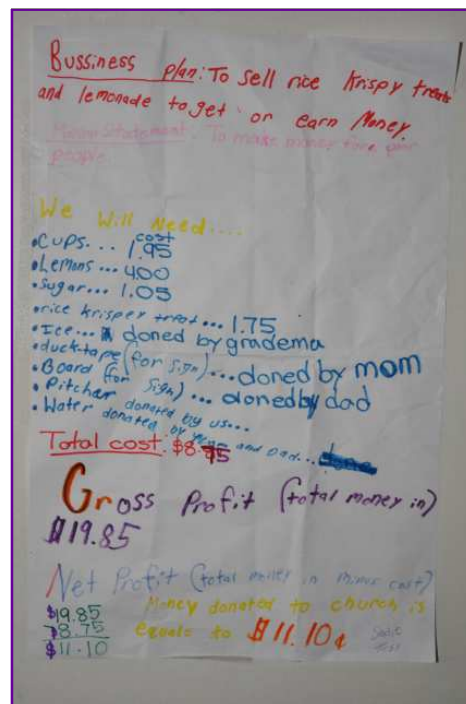 Bussiness plan: To sell rice Krispy treats
and lemonade to get or earn Money.
Mission Statement: To make money for
people
We Will Need....
cost
•Cups... 1.95
•Lemons... 4.00
•Sugar... 1.05
•rice krisper treat... 1.75
•Ice... doned by gradema
•duck-tape (for sign)... doned by mom
•Board (for sign)... doned by dad
•Pitcher donated by us...
•Water donated by and Dad...
Total cost: $8.75
Gross Profit (total money in)
$19.85
Net Profit (total money in minus cost)
$19.85
-$8.75
$11.10
Money donated to church is
equals to $11.10¢